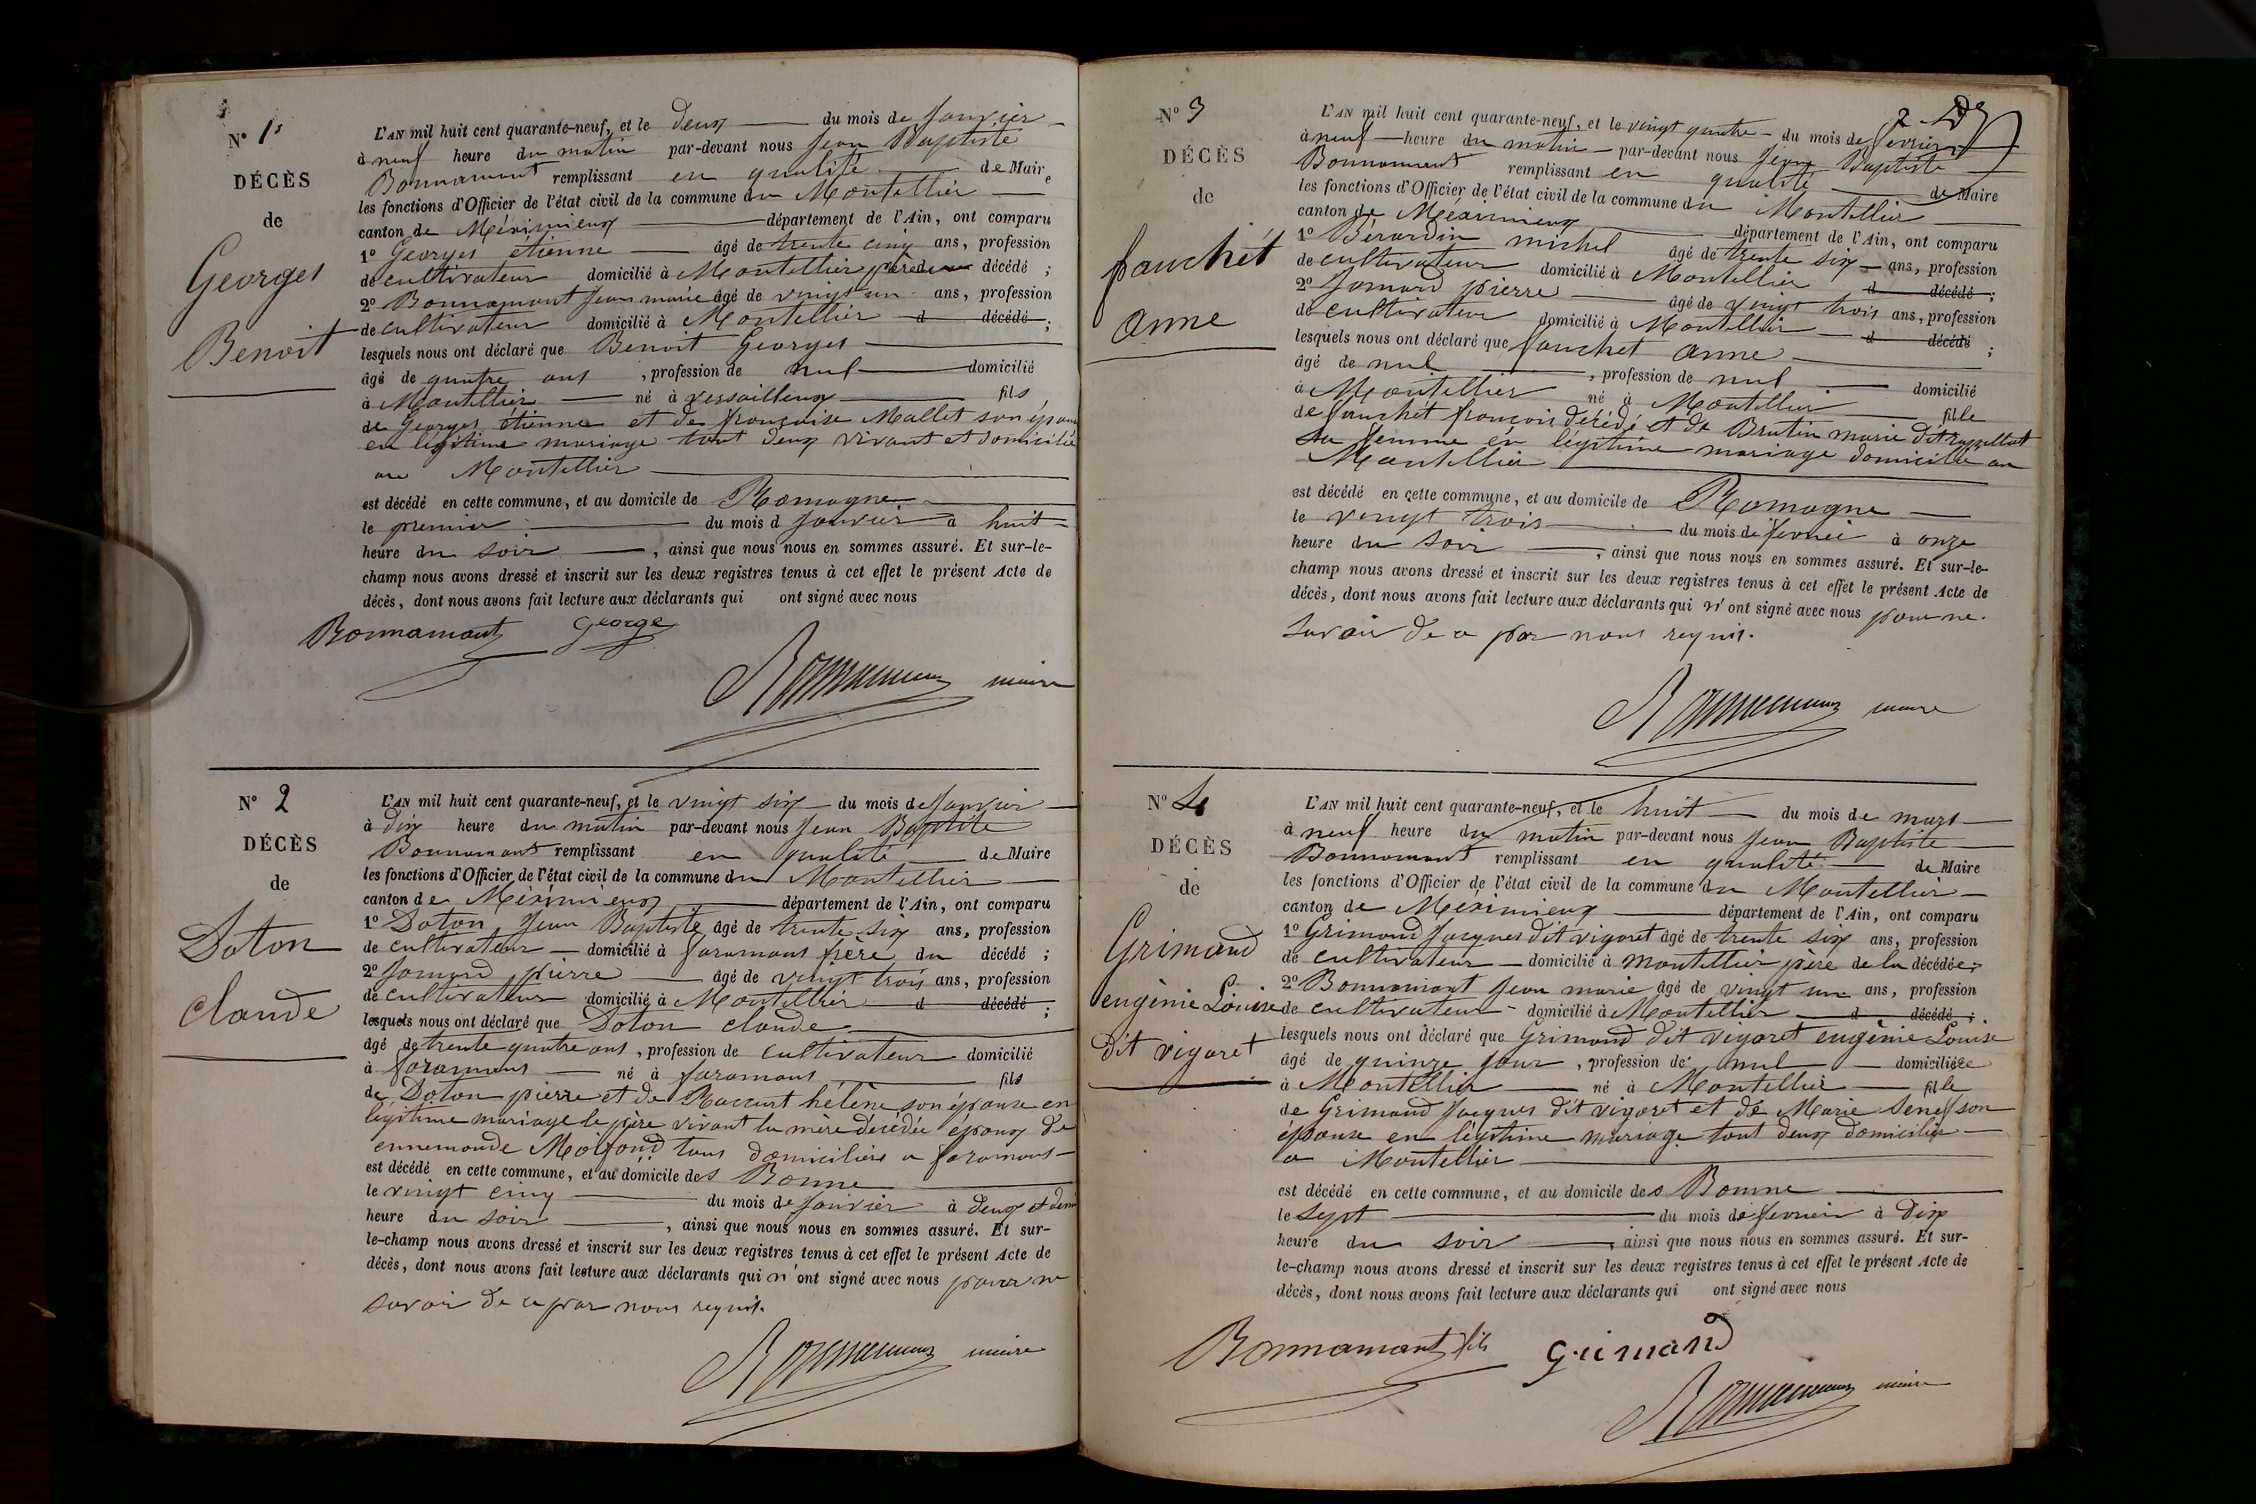 N° 1er
DÉCÈS
de
Georges
Benoit
L'AN mil huit cent quarante-neuf, et le deux du mois de Janvier
à neuf heure du matin par-devant nous Jean Baptiste
Bonnamant remplissant en qualité de Maire
les fonctions d'Officier de l'état civil de la commune du Montellier
canton de Méximieux département de l'Ain, ont comparu
1° Georges étienne âgé de trente cinq ans, profession
de cultivateur domicilié à Montellier père du décédé ;
2° Bonnamant Jean marie âgé de vingt un ans, profession
de cultivateur domicilié à Montellier d décédé ;
lesquels nous ont déclaré que Benoit Georges
âgé de quatre ans , profession de nul domicilié
à Montellier né à versailleux fils
de Georges étienne et de françoise Mallet son épouse
en légitime mariage tout deux vivant et domicilié
au Montellier
est décédé en cette commune, et au domicile de Romagne
le premier du mois d Janvier à huit
heure du soir , ainsi que nous nous en sommes assuré. Et sur-le-
champ nous avons dressé et inscrit sur les deux registres tenus à cet effet le présent Acte de
décès, dont nous avons fait lecture aux déclarants qui ont signé avec nous
Bonnamant George
Bonnamant maire
N° 2
DÉCÈS
de
Doton
claude
L'AN mil huit cent quarante-neuf, et le vingt six du mois de Janvier
à dix heure du matin par-devant nous Jean Baptiste
Bonnamant remplissant en qualité de Maire
les fonctions d'Officier de l'état civil de la commune du Montellier
canton de Méximieux département de l'Ain, ont comparu
1° Doton Jean Baptiste âgé de trente six ans, profession
de cultivateur domicilié à faramans frère du décédé ;
2° Jomard pierre âgé de vingt trois ans, profession
de cultivateur domicilié à Montellier d décédé ;
lesquels nous ont déclaré que Doton claude
âgé de trente quatre ans , profession de cultivateur domicilié
à faramans né à faramans fils
de Doton pierre et de Raccurt hélène son épouse en
légitime mariage le père vivant la mère décédée époux de
ennemonde Molfond tous domiciliés a faramans
est décédé en cette commune, et au domicile des Bonne
le vingt cinq du mois de Janvier à deux et demi
heure du soir , ainsi que nous nous en sommes assuré. Et sur-
le-champ nous avons dressé et inscrit sur les deux registres tenus à cet effet le présent Acte de
décès, dont nous avons fait lecture aux déclarants qui n'ont signé avec nous pour ne
savoir de ce par nous requis.
Bonnamant maire
N° 3
DÉCÈS
de
fauchét
anne
2
L'AN mil huit cent quarante-neuf, et le vingt quatre du mois de fevrier
à neuf heure du matin par-devant nous Jean Baptiste
Bonnamant remplissant en qualité de Maire
les fonctions d'Officier de l'état civil de la commune du Montellier
canton de Méximieux département de l'Ain, ont comparu
1° Bérardin michel âgé de trente six ans, profession
de cultivateur domicilié à Montellier d décédé ;
2° Jomard pierre âgé de vingt trois ans, profession
de cultivateur domicilié à Montellier d décédé ;
lesquels nous ont déclaré que fauchet anne
âgé de nul , profession de nul domicilié
à Montellier né à Montellier fille
de fauchét françois décédé et de Brutin marie dit
sa femme en légitime mariage domicilié au
Montellier
est décédé en cette commune, et au domicile de Romagne
le vingt trois du mois de fevrier à onze
heure du soir , ainsi que nous nous en sommes assuré. Et sur-le-
champ nous avons dressé et inscrit sur les deux registres tenus à cet effet le présent Acte de
décès, dont nous avons fait lecture aux déclarants qui n'ont signé avec nous pour ne
savoir de ce par nous requis.
Bonnamant maire
N° 4
DÉCÈS
de
Grimand
eugènie Louise
dit vigoret
L'AN mil huit cent quarante-neuf, et le huit du mois de mars
à neuf heure du matin par-devant nous Jean Baptiste
Bonnamant remplissant en qualité de Maire
les fonctions d'Officier de l'état civil de la commune du Montellier
canton de Méximieux département de l'Ain, ont comparu
1° Grimand Jacques dit vigoret âgé de trente six ans, profession
de cultivateur domicilié à montellier père de la décédée ;
2° Bonnamant Jean marie âgé de vingt un ans, profession
de cultivateur domicilié à Montellier d décédé ;
lesquels nous ont déclaré que Grimand dit vigoret eugènie Louise
âgé de quinze jour , profession de nul domiciliée
à Montellier né à Montellier fille
de Grimand Jacques dit vigoret et de Marie Senef son
épouse en légitime mariage tout deux domicilié
a Montellier
est décédé en cette commune, et au domicile des Bonne
le sept du mois de fevrier à dix
heure du soir , ainsi que nous nous en sommes assuré. Et sur-
le-champ nous avons dressé et inscrit sur les deux registres tenus à cet effet le présent Acte de
décès, dont nous avons fait lecture aux déclarants qui ont signé avec nous
Bonnamant fils Grimand
Bonnamant maire